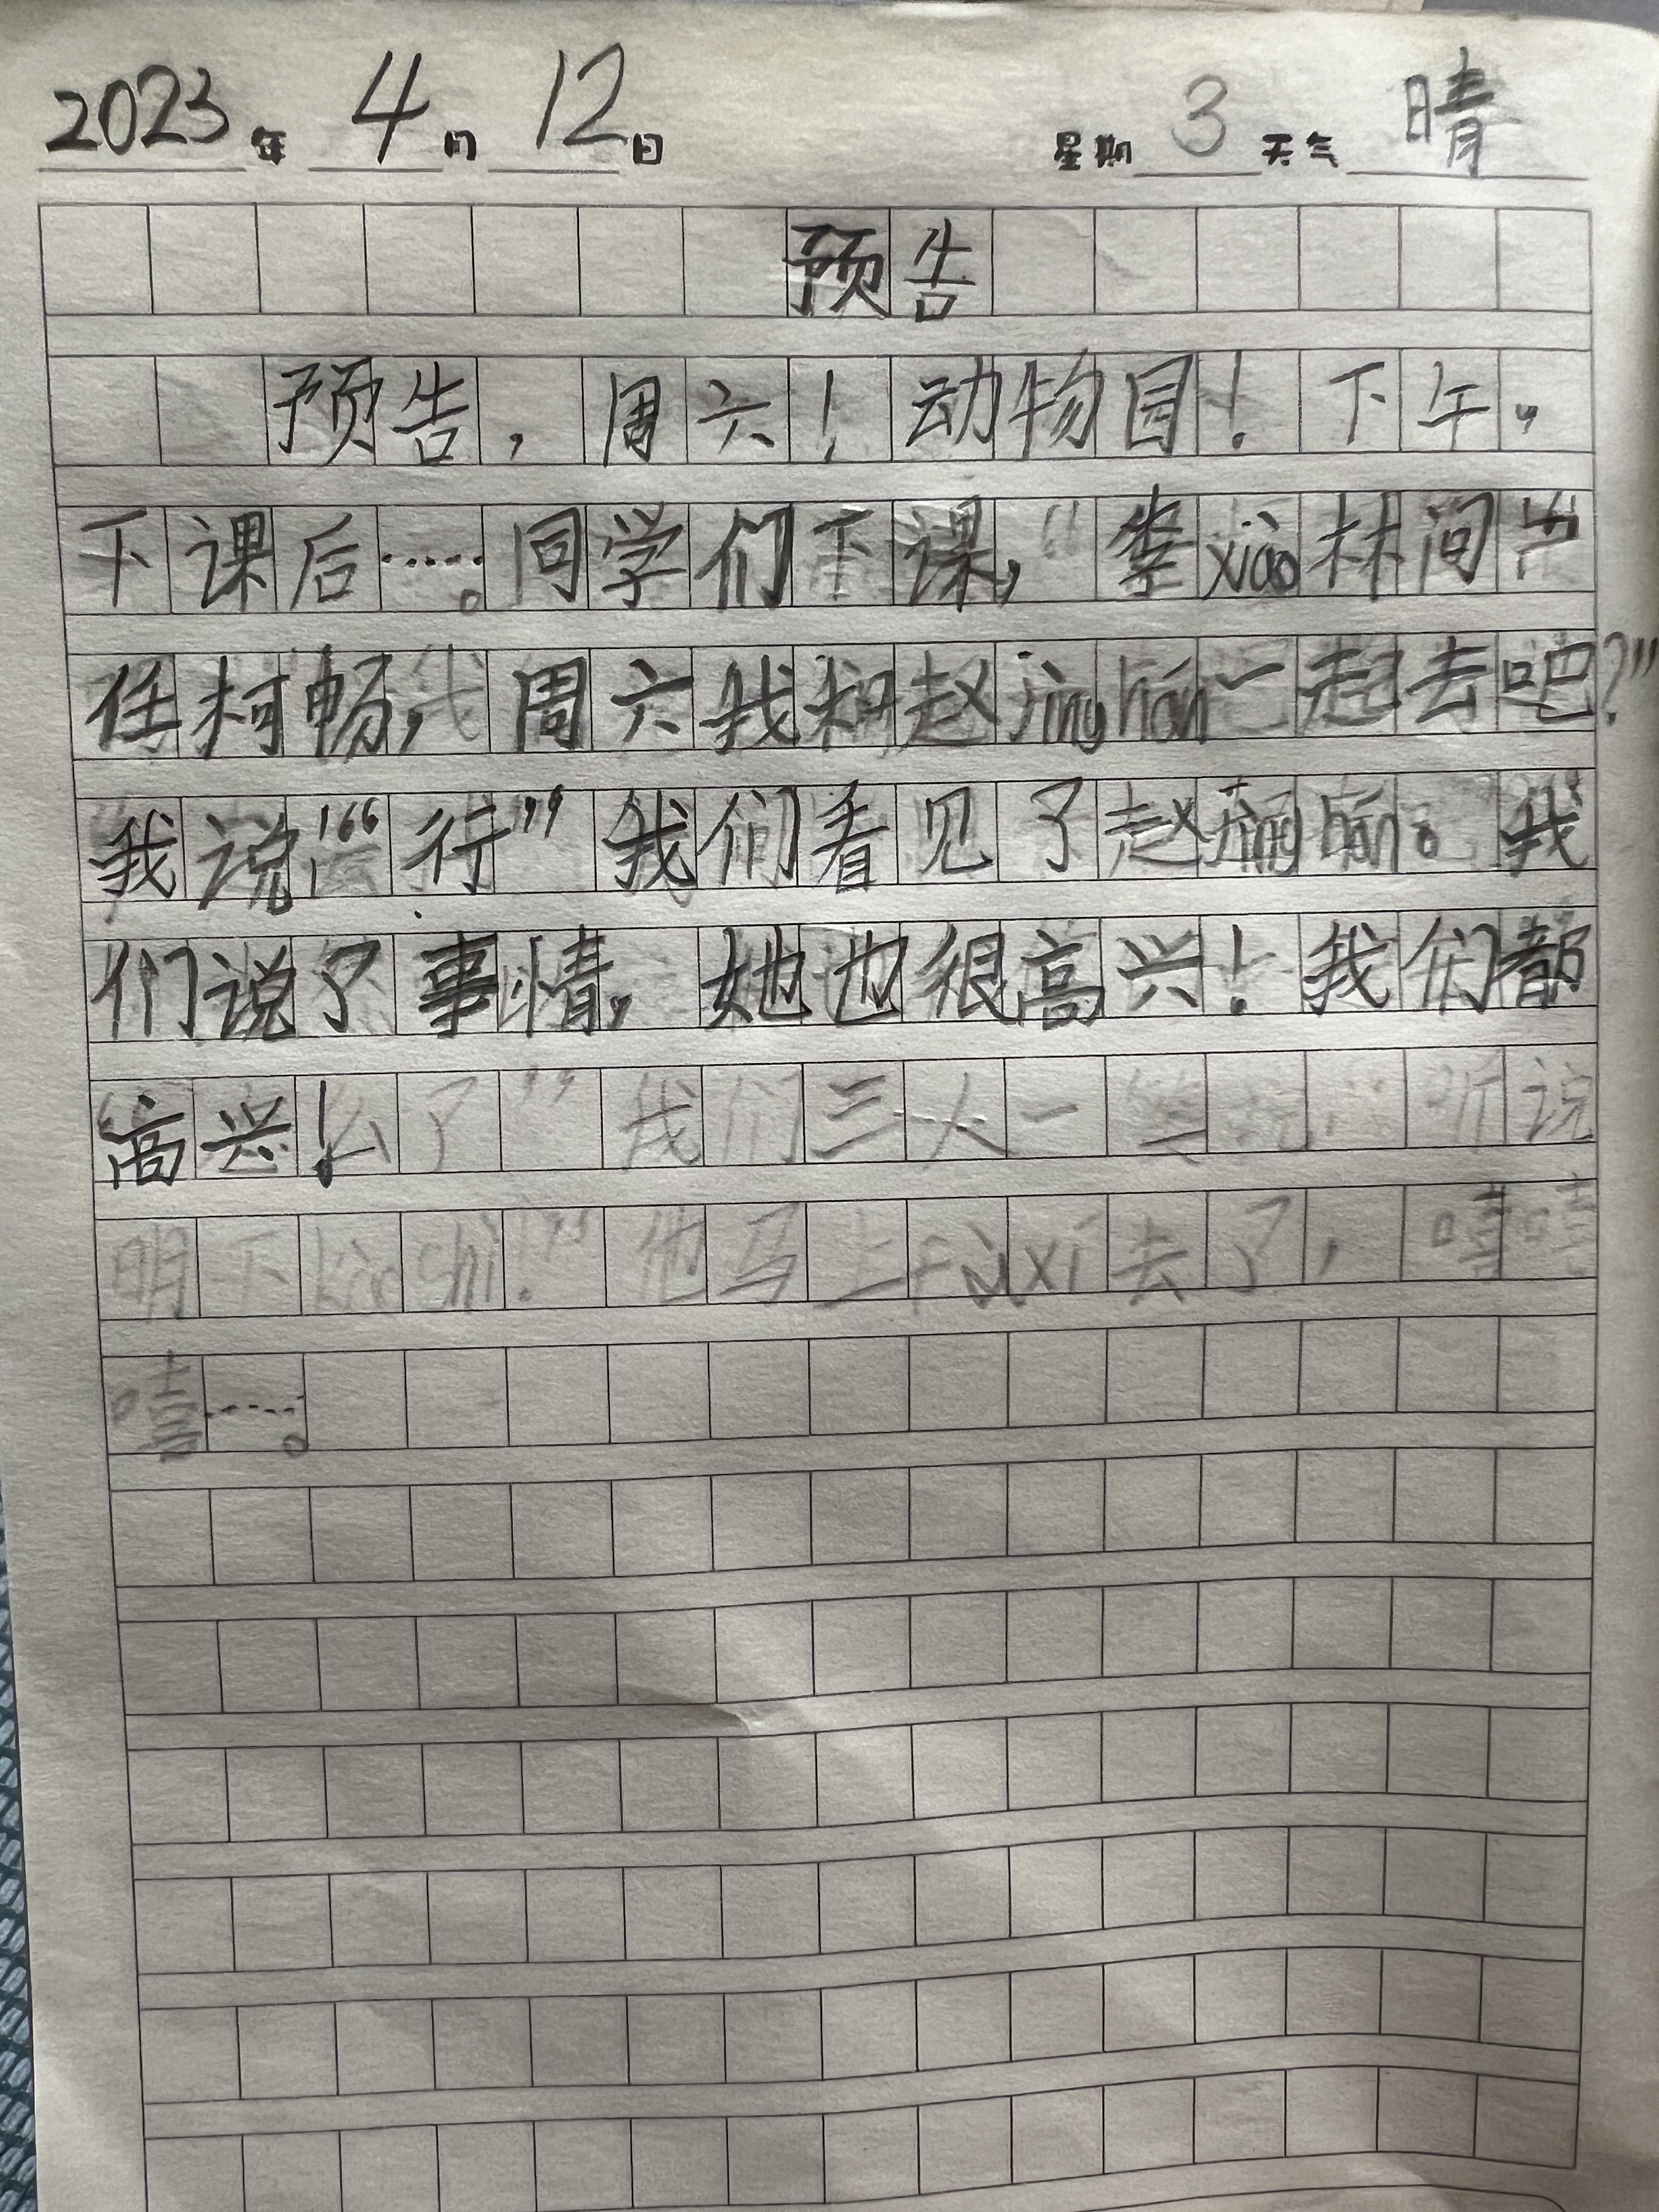 2023年 4月 12日 星期 3 天气 晴
预告
预告，周六！动物园！下午，
下课后……。同学们下课，“李xiǎo林问
任柯畅，周六我和赵jīng hán一起去吧？”
我说，“行”我们看见了赵jīng hán。我
们说了事情，她也很高兴！我们都
高兴！么了”我们三人一 听说
明下 shì！”他马上fùxí去了，嘻嘻
嘻……。